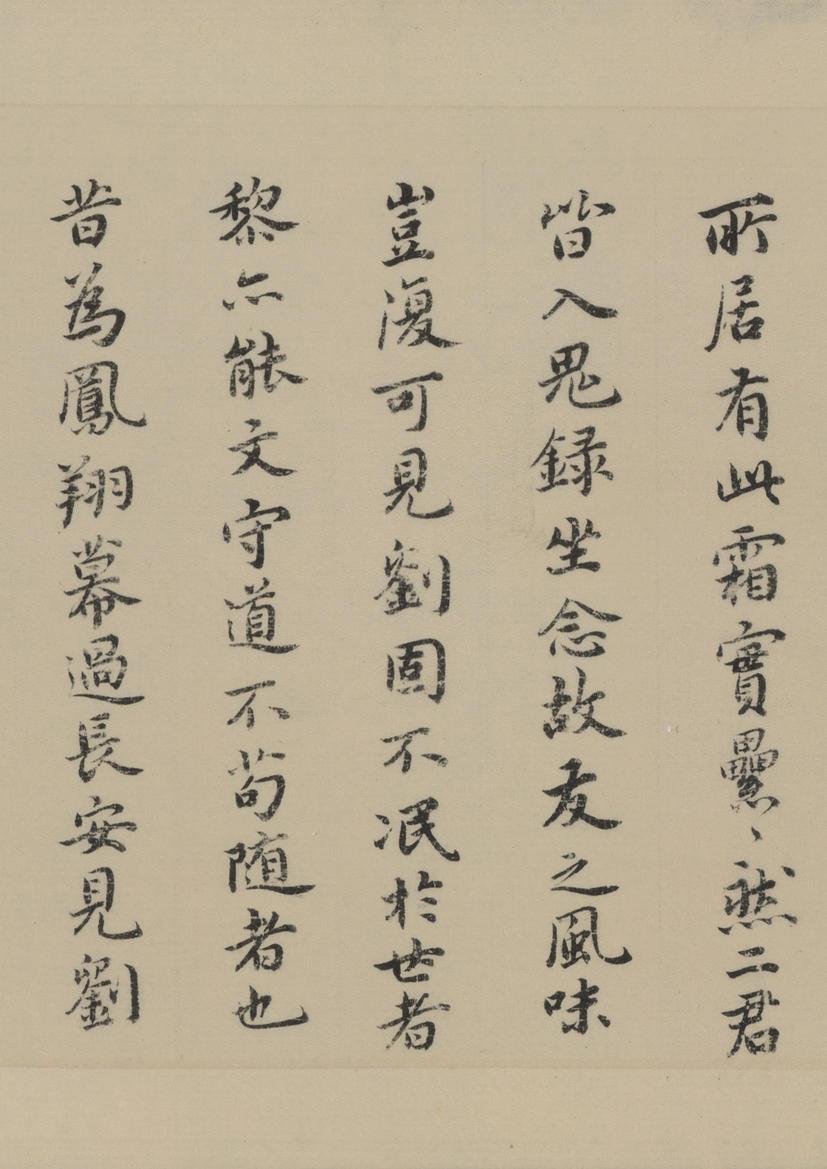 所居有此霜實纍〻然二君
皆入鬼錄坐念故友之風味
豈復可見劉固不泯於世者
黎亦能文守道不苟随者也
昔為鳳翔幕過長安見劉